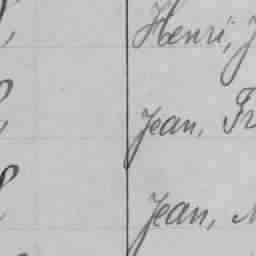 Henri, J
Jean, Fr
Jean,